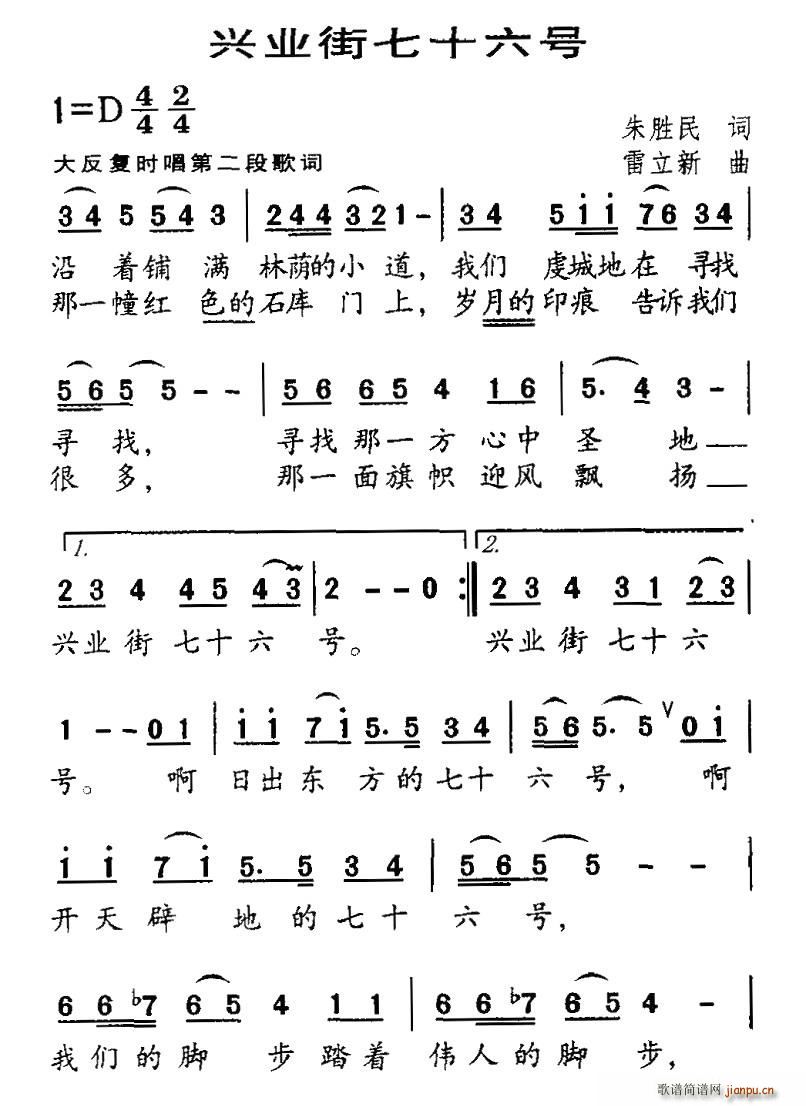 兴业街七十六号
1=D 4/4 2/4
朱胜民 词
大反复时唱第二段歌词
雷立新 曲
3 4 5 5 4 3 | 2 4 4 3 2 1 - | 3 4 5 i i 7 6 3 4 |
沿着铺满林荫的小道，我们虔城地在寻找
那一幢红色的石库门上，岁月的印痕告诉我们
5 6 5 5 - - | 5 6 6 5 4 1 6 | 5. 4 3 - |
寻找，寻找那一方心中圣地
很多，那一面旗帜迎风飘扬
1. 2.
2 3 4 4 5 4 3 | 2 - - 0 :‖ 2 3 4 3 1 2 3 |
兴业街七十六号。兴业街七十六
1 - - 0 1 | i i 7 i 5. 5 3 4 | 5 6 5. 5 V 0 i |
号。啊日出东方的七十六号，啊
i i 7 i 5. 5 3 4 | 5 6 5 5 - - |
开天辟地的七十六号，
6 6 ♭7 6 5 4 1 1 | 6 6 ♭7 6 5 4 - |
我们的脚步踏着伟人的脚步，
歌谱简谱网
jianpu.cn